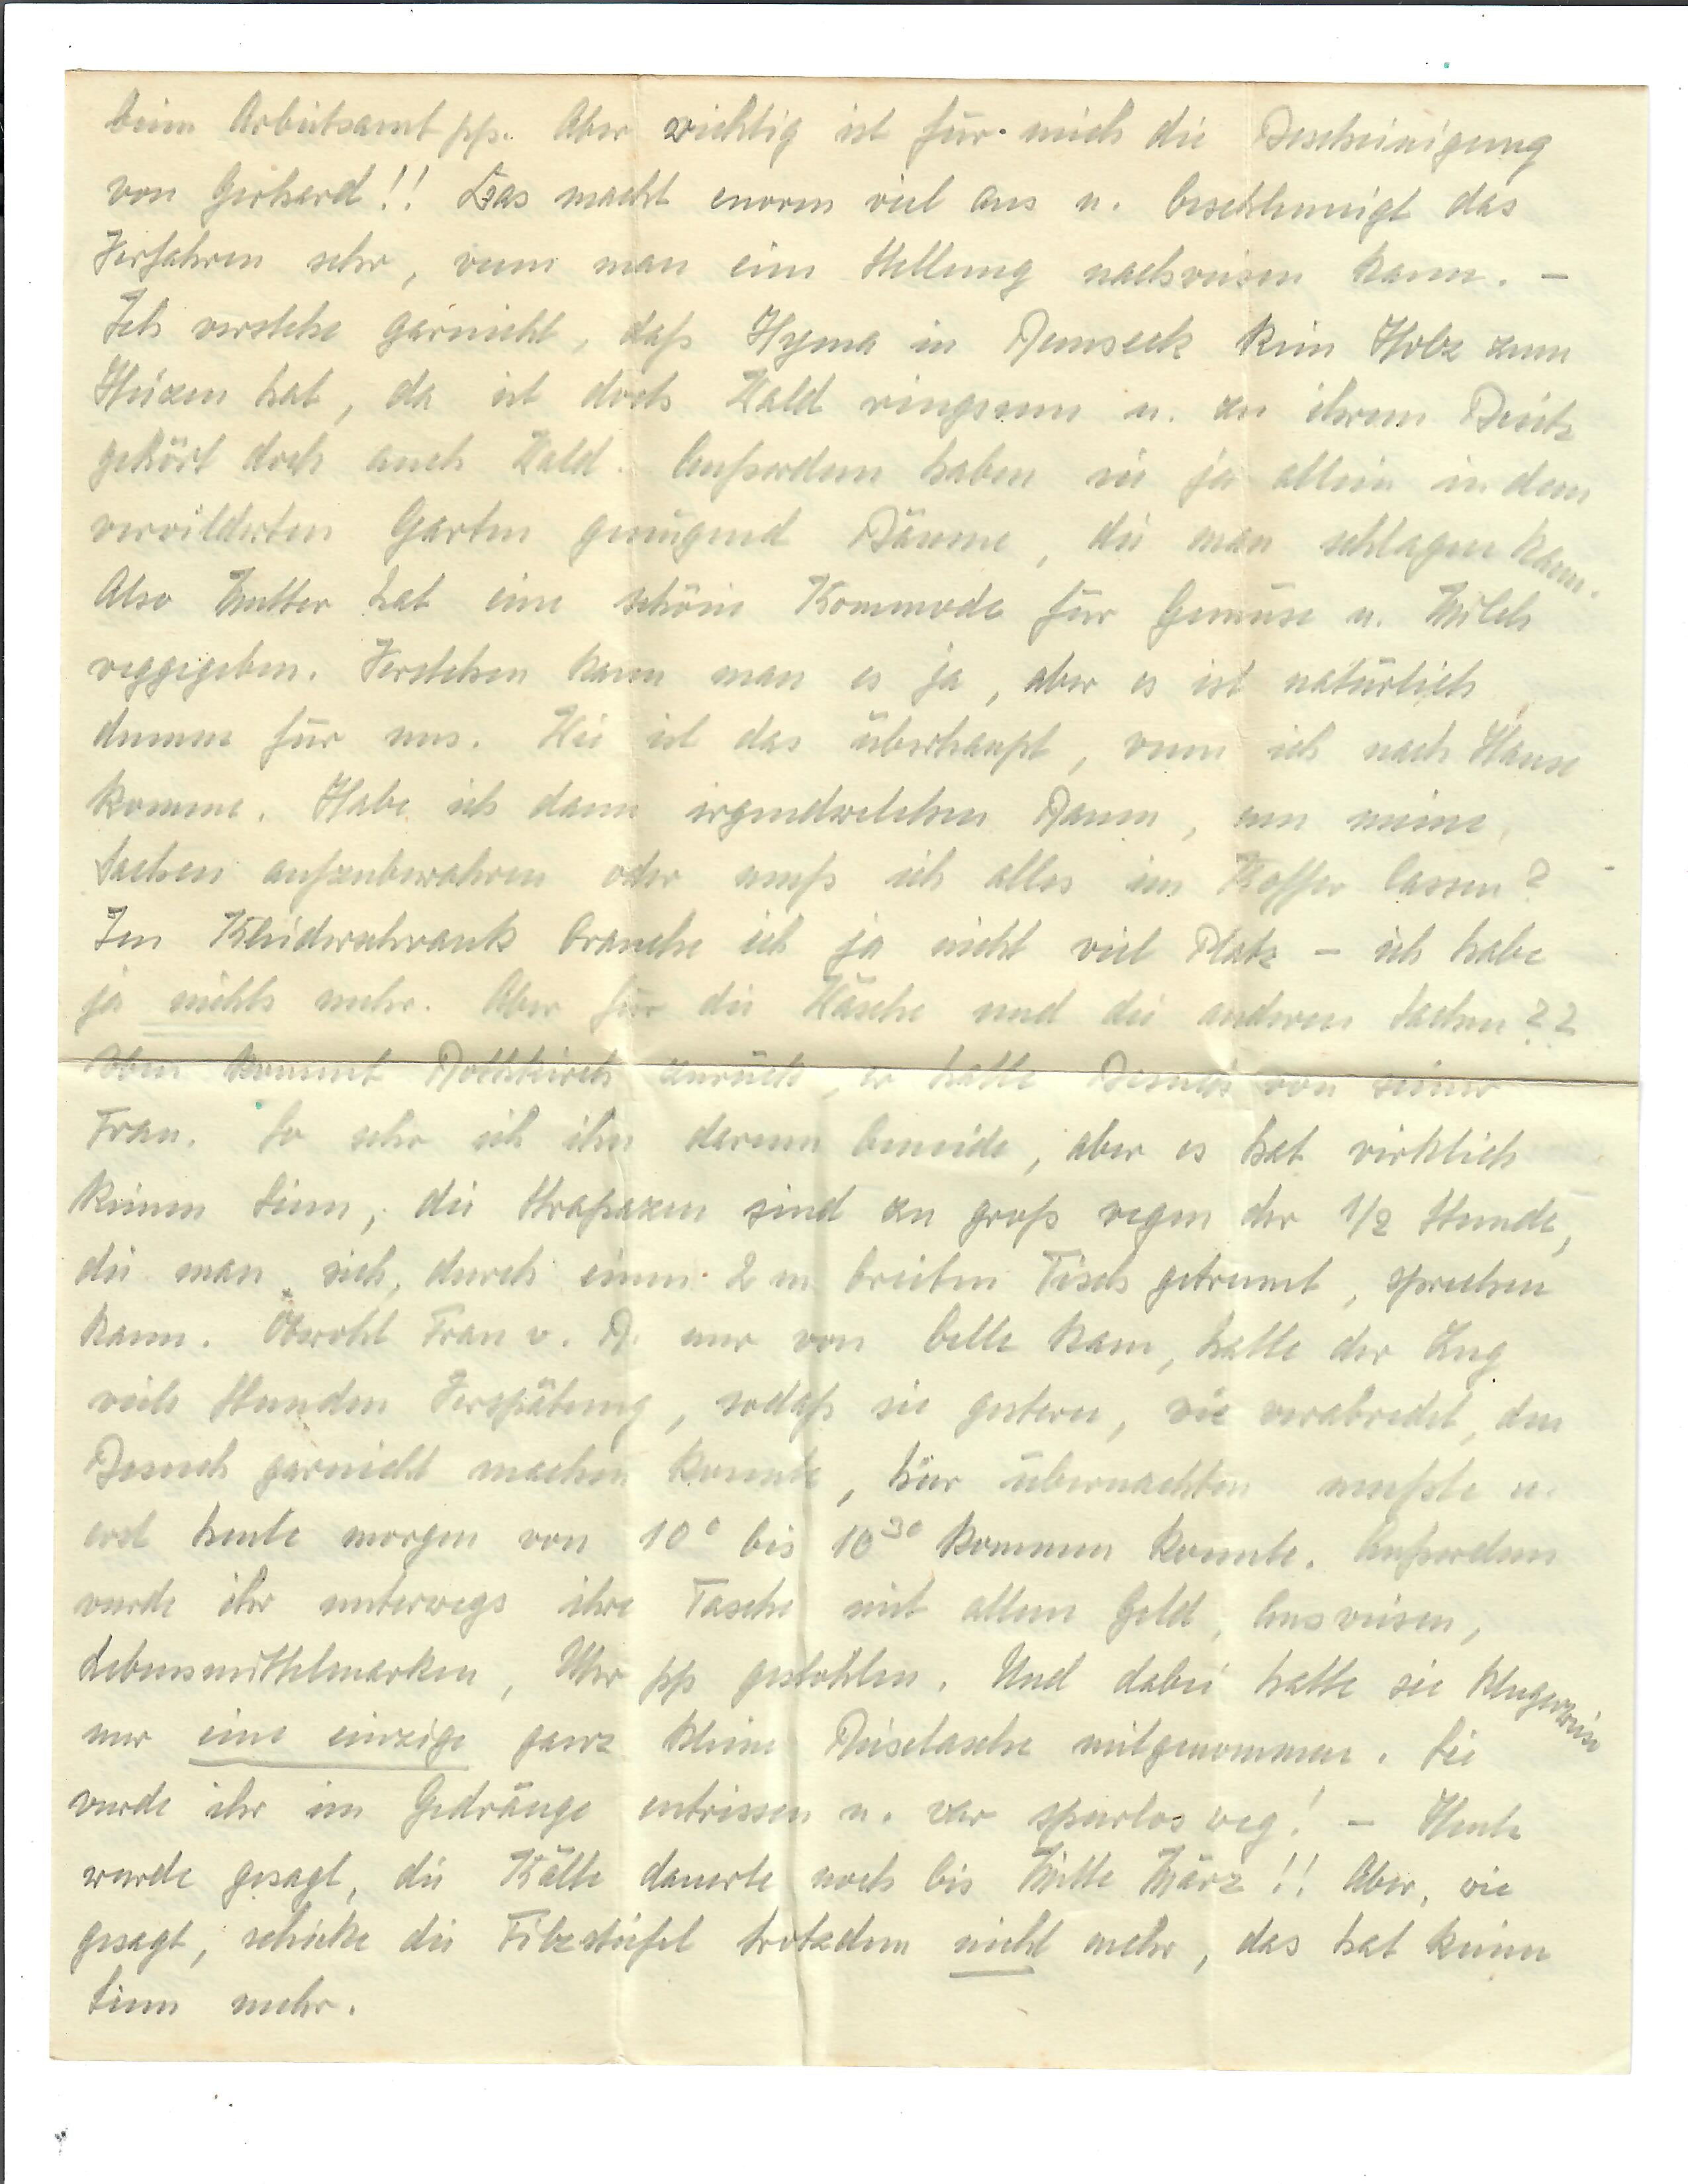 beim Arbeitsamt pp. Aber wichtig ist für mich die Bescheinigung
von Gerhard!! Das macht enorm viel aus u. beschleunigt das
Verfahren sehr, wenn man eine Stellung nachweisen kann. –
Ich verstehe garnicht, daß Hyma in kein Holz zum
Heizen hat, da ist doch Wald ringsum u. zu ihrem Besitz
gehört doch auch Wald. Außerdem haben sie ja allein in dem
verwilderten Garten genügend Bäume, die man schlagen kann.
Also Mutter hat eine schöne Kommode für Gemüse u. Milch
weggegeben. Verstehen kann man es ja, aber es ist natürlich
dumm für uns. Wie ist das überhaupt, wenn ich nach Hause
komme. Habe ich dann irgendwelchen Raum, um meine
Sachen aufzubewahren oder muß ich alles im Koffer lassen?
Im Kleiderschrank brauche ich ja nicht viel Platz – ich habe
ja nichts mehr. Aber für die Wäsche und die anderen Sachen??
Eben kommt Rothkirch zurück, er hatte Besuch von seiner
Frau. So sehr ich ihn darum beneide, aber es hat wirklich
keinen Sinn, die Strapazen sind zu groß wegen der 1/2 Stunde,
die man sich, durch einen 2 m breiten Tisch getrennt, sprechen
kann. Obwohl Frau v. R. nur von Celle kam, hatte der Zug
viele Stunden Verspätung, sodaß sie gestern, wie verabredet, den
Besuch garnicht machen konnte, hier übernachten mußte u.
erst heute morgen von 10⁰ bis 10³⁰ kommen konnte. Außerdem
wurde ihr unterwegs ihre Tasche mit allem Geld, Ausweisen,
Lebensmittelmarken, Uhr pp gestohlen. Und dabei hatte sie klugerweise
nur eine einzige ganz kleine Reisetasche mitgenommen. Sie
wurde ihr im Gedränge entrissen u. war spurlos weg! – Heute
wurde gesagt, die Kälte dauerte noch bis Mitte März!! Aber, wie
gesagt, schicke die Filzstiefel trotzdem nicht mehr, das hat keinen
Sinn mehr.